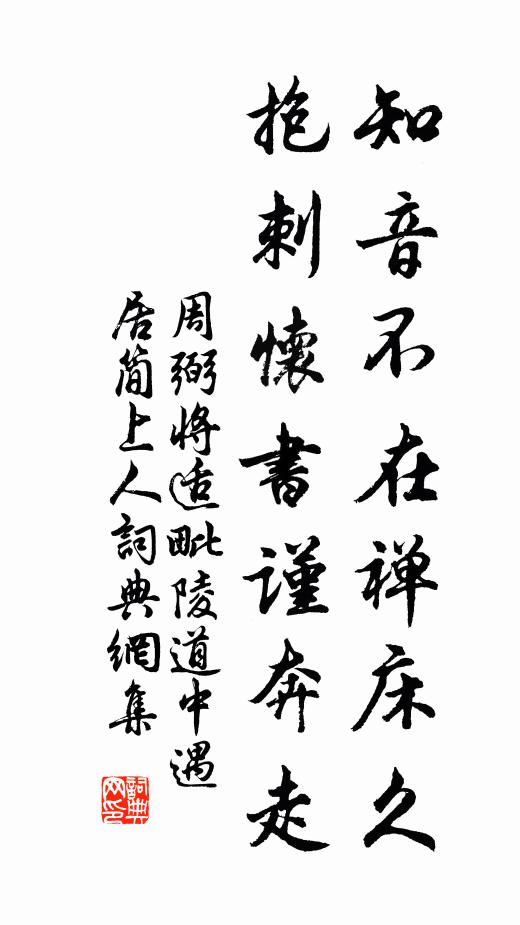 知音不在禅床久
抱刺懷書謹奔走
周弼将适毗陵道中遇
居简上人詞典網集
詞典
网印